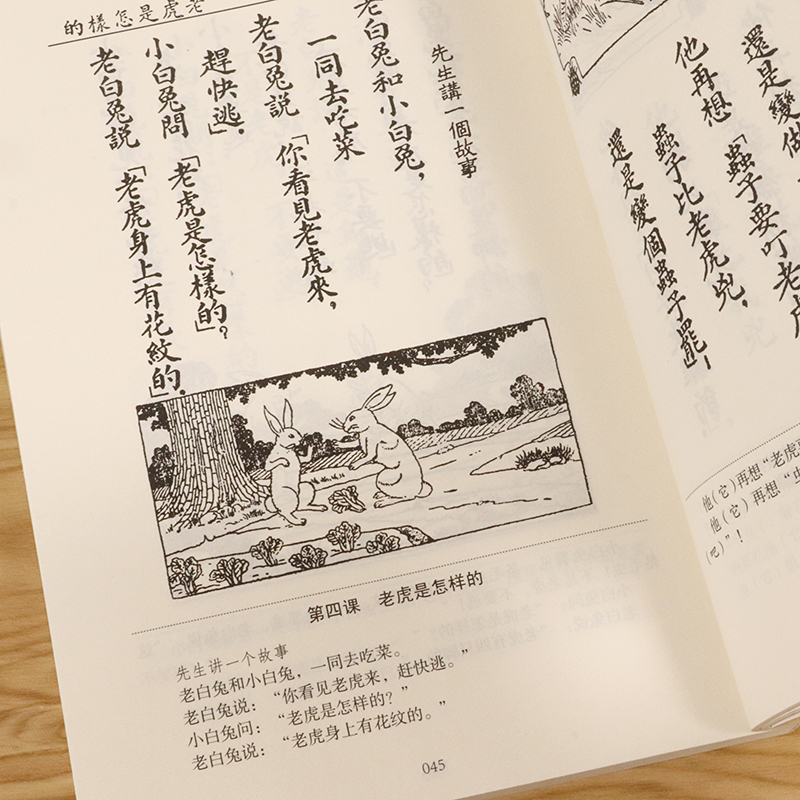 老虎是怎樣的
先生講一個故事
老白兔和小白兔，
一同去吃菜
老白兔說「你看見老虎來，
趕快逃」。
小白兔問「老虎是怎樣的」？
老白兔說「老虎身上有花紋的」。
第四课　老虎是怎样的
先生讲一个故事
老白兔和小白兔，一同去吃菜。
老白兔说：“你看见老虎来，赶快逃。”
小白兔问：“老虎是怎样的？”
老白兔说：“老虎身上有花纹的。”
045
還是變做
他再想「蟲子要叮老虎
蟲子比老虎兇，
還是變個蟲子罷」，
他（它）再想“老虎
他（它）再想“虫
（吧）”！